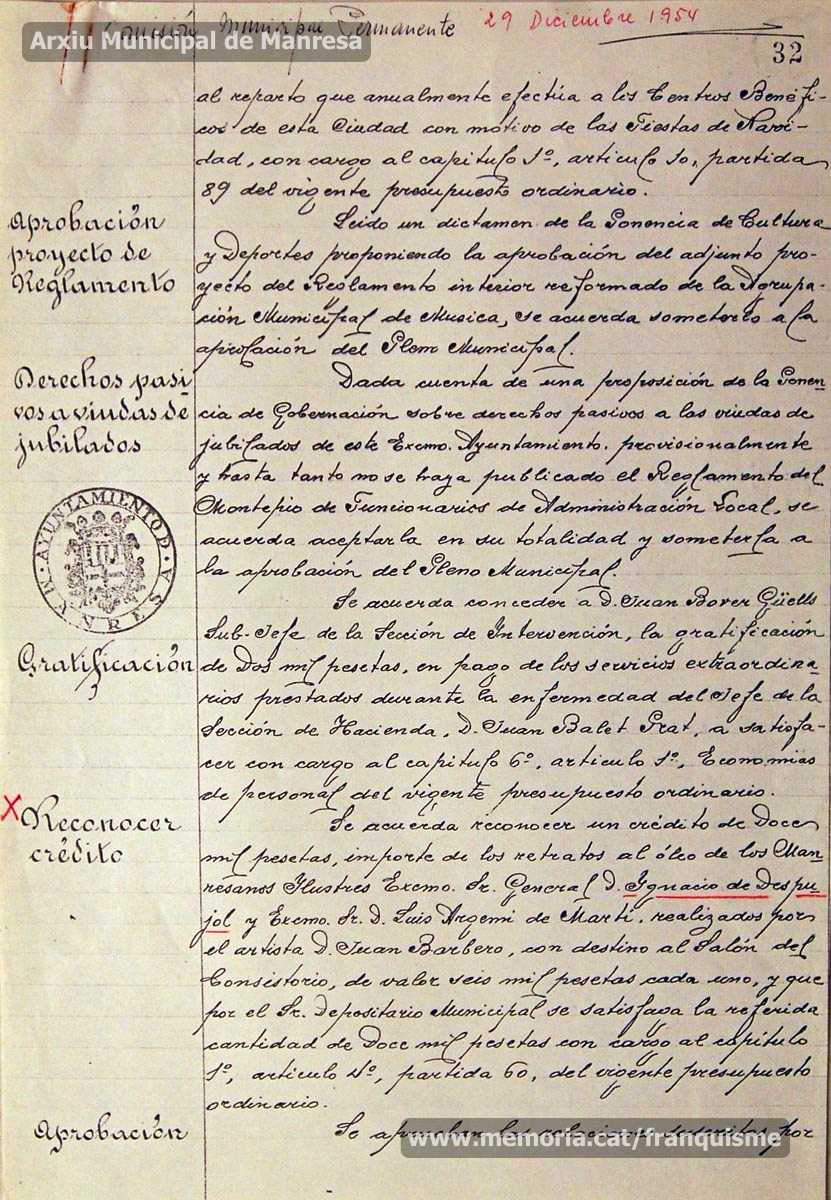 Comisión Municipal Permanente 29 Diciembre 1954
Arxiu Municipal de Manresa
32
al reparto que anualmente efectúa a los Centros Benéfi-
cos de esta Ciudad con motivo de las Fiestas de Navi-
dad, con cargo al capitulo 1º, articulo 10, partida
89 del vigente presupuesto ordinario.
Aprobación
proyecto de
Reglamento
Leido un dictamen de la Ponencia de Cultura
y Deportes proponiendo la aprobación del adjunto pro-
yecto del Reglamento interior reformado de la Agrupa-
ción Municipal de Musica, se acuerda someterlo a la
aprobación del Pleno Municipal.
Derechos pasi-
vos a viudas de
jubilados
Dada cuenta de una proposición de la Ponen-
cia de Gobernación sobre derechos pasivos a las viudas de
jubilados de este Excmo. Ayuntamiento, provisionalmente
y hasta tanto no se haya publicado el Reglamento del
Montepio de Funcionarios de Administración Local, se
acuerda aceptarla en su totalidad y someterla a
la aprobación del Pleno Municipal.
AYUNTAMIENTO D
MANRESA
Gratificación
Se acuerda conceder a D. Juan Bover Güells
Sub-Jefe de la Sección de Intervención, la gratificación
de Dos mil pesetas, en pago de los servicios extraordina-
rios prestados durante la enfermedad del Jefe de la
Sección de Hacienda, D. Juan Balet Prat, a satisfa-
cer con cargo al capitulo 6º, articulo 1º, Economias
de personal del vigente presupuesto ordinario.
X Reconocer
crédito
Se acuerda reconocer un crédito de Doce
mil pesetas, importe de los retratos al óleo de los Man-
resanos Ilustres Excmo. Sr. General D. Ignacio de Despu-
jol y Excmo. Sr. D. Luis Argemi de Martí, realizados por
el artista D. Juan Barbero, con destino al Salón del
Consistorio, de valor seis mil pesetas cada uno, y que
por el Sr. Depositario Municipal se satisfaga la referida
cantidad de Doce mil pesetas con cargo al capítulo
1º, articulo 4º, partida 60, del vigente presupuesto
ordinario.
Aprobación
Se aprueban las relaciones suscritas por
www.memoria.cat/franquisme